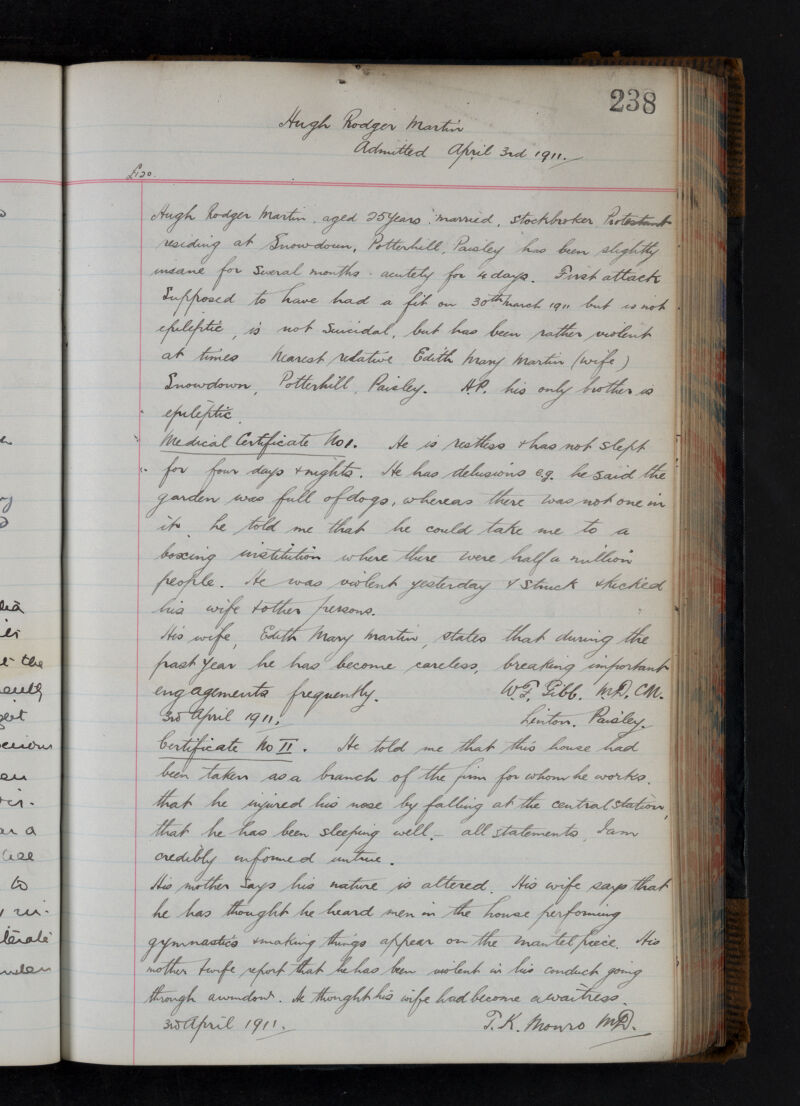 238
Hugh Rodger Martin
Admitted April 3rd 1911.
£120.
Hugh Rodger Martin. aged 25 years. married, Stockbroker Protestant
residing at Snowdoun, Potterhill, Paisley has been slightly
insane for Several months. acutely for 4 days. First attack
Supposed to have had a fit on 30th March 1911 but is not
epileptic, is not Suicidal, but has been rather violent
at times Nearest relative Edith Mary Martin (wife)
Snowdown, Potterhill, Paisley. H.P. his only brother is
epileptic.
Medical Certificate No 1. He is restless & has not slept
for four days & nights. He has delusions e.g. he said the
garden was full of dogs, whereas there was not one in
it. he told me that he could take me to a
boxing institution where there were half a million
people. He was violent yesterday & struck & kicked
his wife & other persons.
His wife, Edith Mary Martin, states that during the
past year he has become careless, breaking important
engagements frequently. W.F. Gibb. M.D. C.M.
3rd April 1911. Linton. Paisley.
Certificate No II. He told me that this house had
been taken as a branch of the firm for whom he works.
that he injured his nose by falling at the central station,
that he has been sleeping well,- all statements, I am
credibly informed untrue.
His mother says his nature is altered. His wife says that
he has thought he heard men in the house performing
gymnastics & making things appear on the mantelpiece. His
mother & wife report that he has been violent in his conduct going
through a window. He thought his wife had become a waitress.
3rd April 1911. T.K. Monro M.D.
the
to